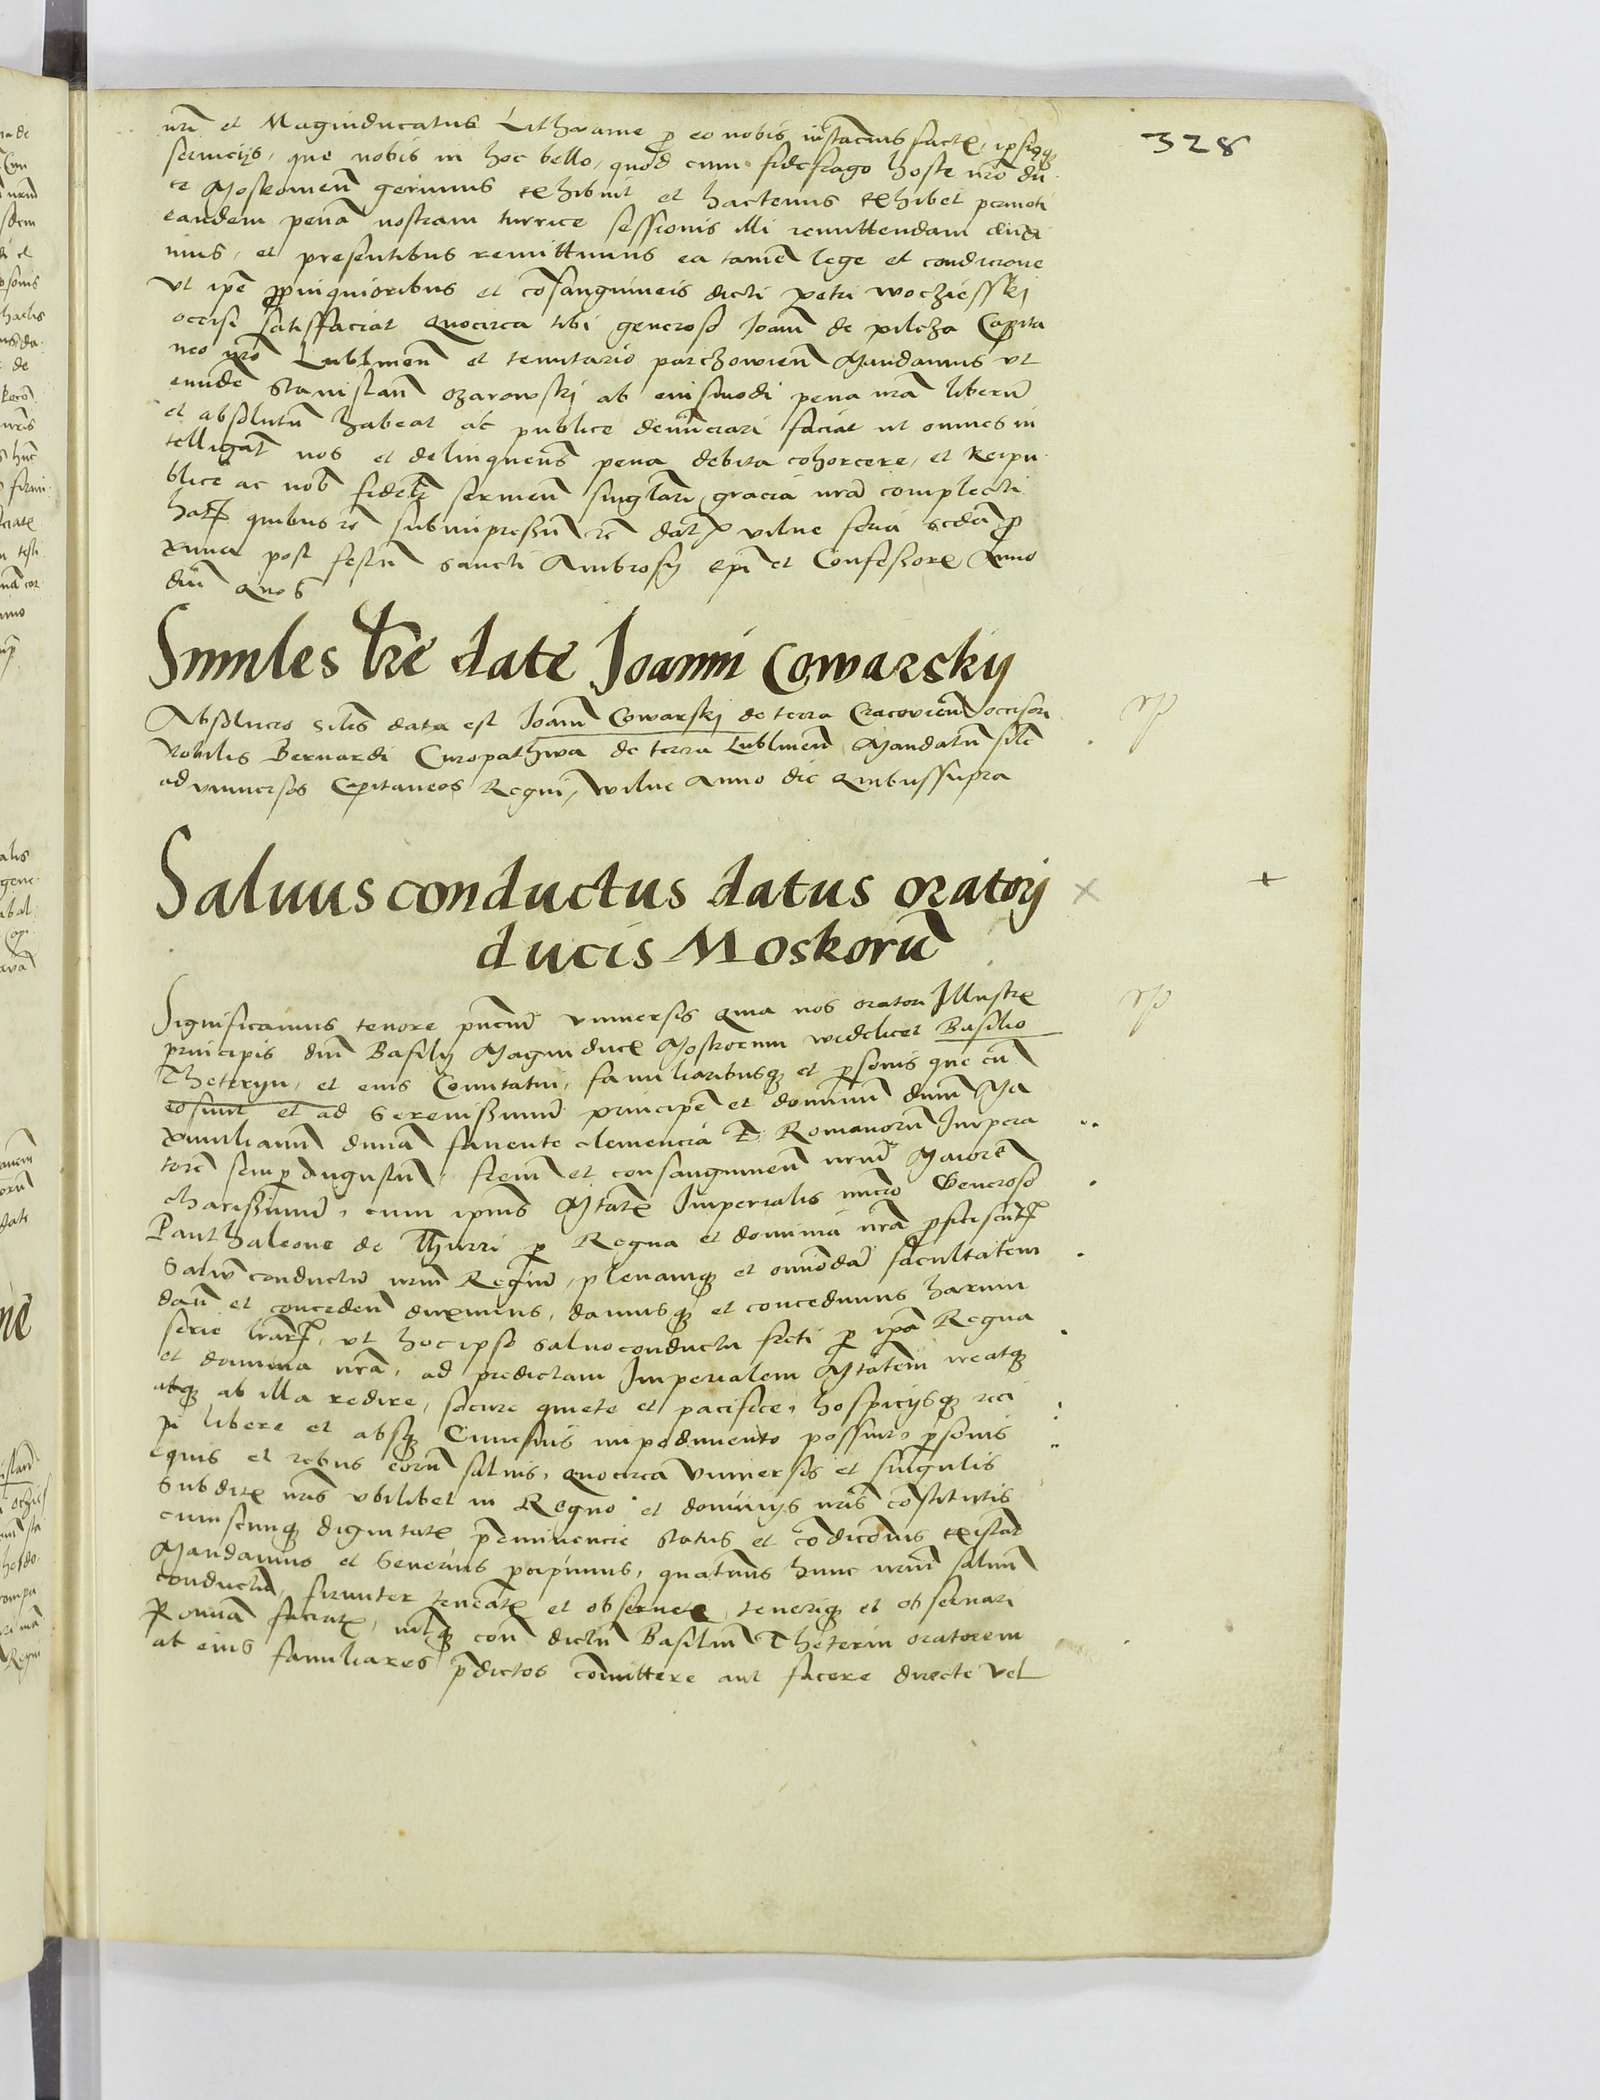 328
nrı̄ et Maginducatus Lithwanie p̱ eo nobis instancius factꝭ, ipsiusqꝫ
seruicijs, que nobis in hoc bello, quod cum fidefrago hoste nr̄o du
ce Moskouien̄ gerimus exhibuit et hactenus exhibet permoti
eandem penā nostram turrice sessionis illi remittendam duxi
mus, et presentibus remittimus ea tamē lege et condicione
vt ipē ꝓpinquioribus et cōsanguineis dicti petri woczieskj
occisi satisffaciat Quocirca tibi generoso Joanī de pilcza Capita
neo nrō Lublinen̄ et tenutario parchowien̄ Mandamus vt
eundē Stanislaū ozarowski ab eiusmodi pena nrā liberū
et absolutū habeat ac publice denūctiari faciat ut omnes in
telligāt nos et delinquen̄s pena debita cohorcere, et Reipu
blice ac nob̄ fidelꝭ seruien̄ singları̄ gracia nrā complecti
harꝫ quibus ꝛc̄ subimpressū ꝛc̄ datꝫ vilne feria secda ꝓ
xima post festū sancti Ambrosij epī et Confessorꝭ Anno
dn̄i quo s̄
Similes lr̄e date Joanni Cowarskij
Absolucio silis data est Joanī Cowarskj de terra Cracovien̄ occisori
Nobilis Bernardi Curopathwa de terra Lublinen̄ Mandatū silē
ad vniuersos Capitaneos Regni, wilne Anno die Quibussupra
Saluus conductus datus oratorj
ducis Moskorū
Significamus tenore pn̄ciū vniuersis Quia nos oratori Illustrꝭ
principis dn̄i Basilij Magni ducꝭ Moskorum videlicet Basilio
Theteryn, et eius Comitatui, familiaribusqꝫ et ꝑsonis que cū
eo sunt et ad Serenissimū principē et dominū dn̄m Ma
ximilianū diuina fauente clemencia E. Romanorū Impera
torē semꝑ Augustū, frēm et consanguineū nrūm Maiorē
charissimū, cum ipius Mtatꝭ Imperialis nūcio Generoso
Panthaleone de Thurri ꝑ Regna et dominia nrā ꝓficiscentꝫ
Saluū conductū nrūm Regiū, plenamqꝫ et omīodā facultatem
dan̄ et conceden̄ duximus, damusqꝫ et concedimus harum
serie lrarꝫ, vt hoc ipso saluoconductu freti ꝑ ipā Regna
et dominia nrā, ad predictam Imperialem Mtatem ireatqꝫ
atqꝫ ab illa redire, secure quiete et pacifice, hospicijsqꝫ reci
pi libere et absqꝫ Cuiusuis impedimento possint, ꝑsonis
equis et rebus eorū saluis, Quocirca Vniuersis et singulis
Subditꝭ nris vbilibet in Regno et dominijs nris cōstitutis
cuiuscunqꝫ dignitatꝭ ꝑeminencie status et cōdicōnis existāt
Mandamus et Seuerius ꝑcipimus, quatinus hunc nrūm saluū
conductū, firmiter teneatꝭ et obseruetꝭ, tenerīqꝫ et obseruari
faciatꝭ, nilqꝫ con̄ dictū Basiliū Theterin oratorem
at eius familiares p̄dictos cōmittere aut facere directe vel